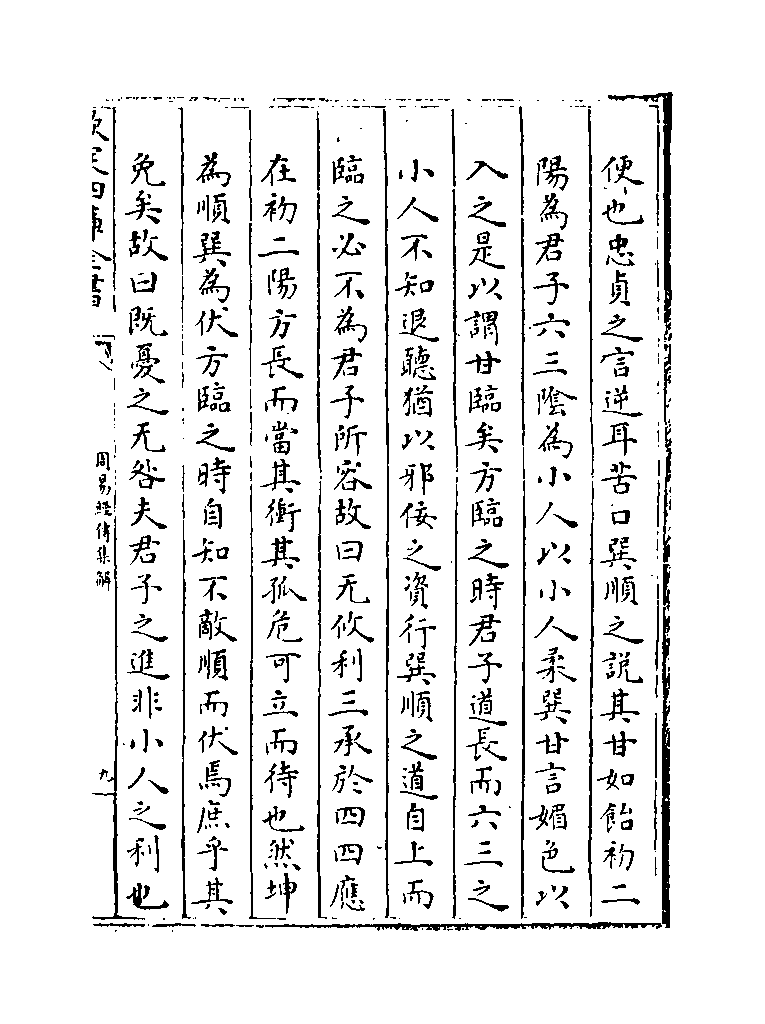 便也忠貞之言逆耳苦口巽順之說其甘如飴初二
陽為君子六三陰為小人以小人柔巽甘言媚色以
入之是以謂甘臨矣方臨之時君子道長而六三之
小人不知退聽猶以邪佞之資行巽順之道自上而
臨之必不為君子所容故曰无攸利三承於四四應
在初二陽方長而當其衝其孤危可立而待也然坤
為順巽為伏方臨之時自知不敵順而伏焉庶乎其
免矣故曰既憂之无咎夫君子之進非小人之利也
欽定四庫全書
周易經傳集解
九